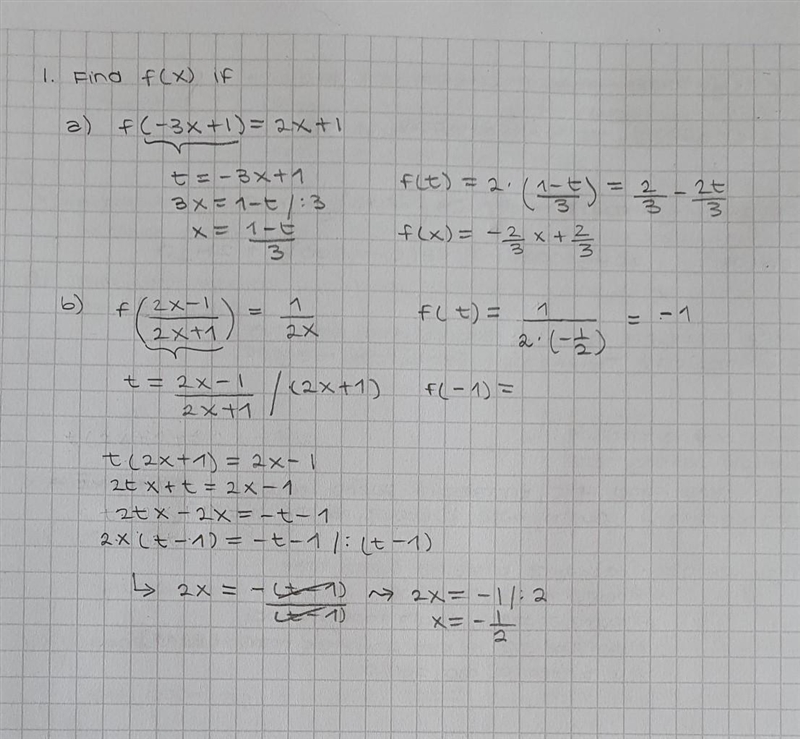 1. Find f(x) if
a) f(-3x+1) = 2x+1
t = -3x+1
3x = 1-t /:3
x = (1-t)/3
f(t) = 2·((1-t)/3) = 2/3 - 2t/3
f(x) = -2/3 x + 2/3
b) f((2x-1)/(2x+1)) = 1/(2x)
t = (2x-1)/(2x+1) /(2x+1)
t(2x+1) = 2x-1
2tx+t = 2x-1
2tx-2x = -t-1
2x(t-1) = -t-1 /:(t-1)
↳ 2x = -(t-1)/(t-1) ⇝ 2x = -1 /:2
x = -1/2
f(t) = 1/(2·(-1/2)) = -1
f(-1) =